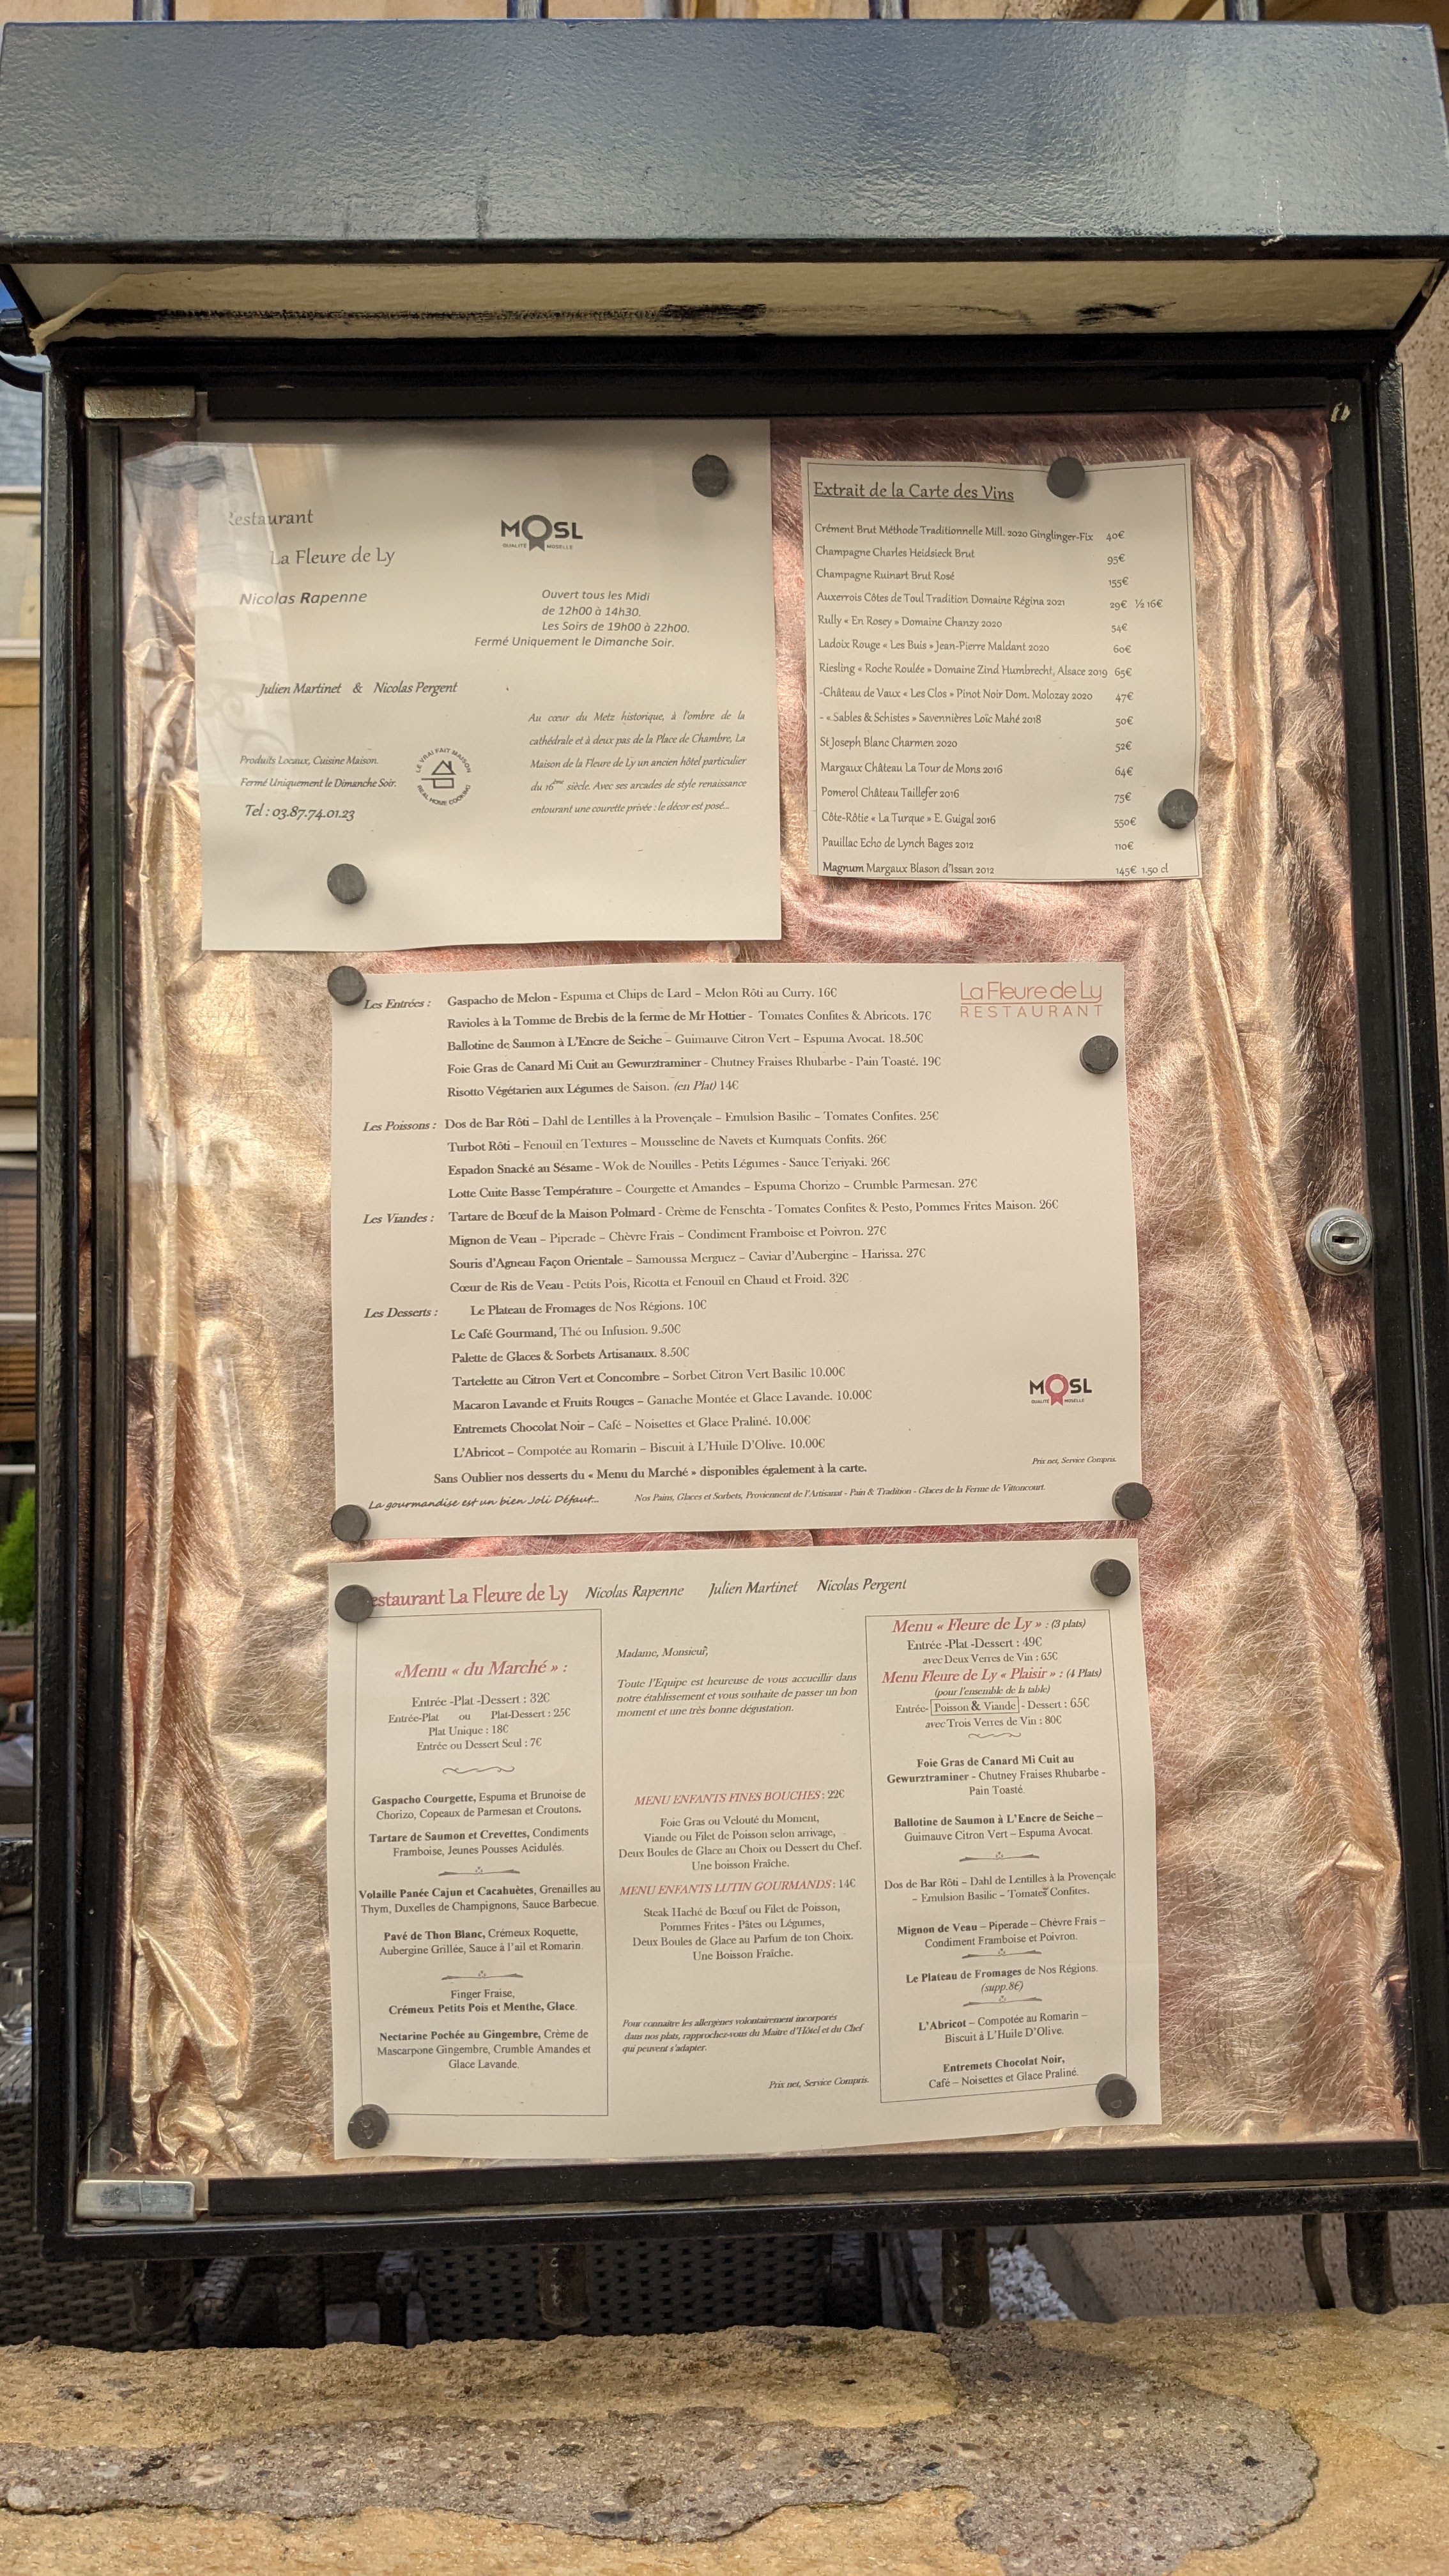 Restaurant
La Fleure de Ly
Nicolas Rapenne
MOSL
QUALITÉ MOSELLE
Ouvert tous les Midi
de 12h00 à 14h30.
Les Soirs de 19h00 à 22h00.
Fermé Uniquement le Dimanche Soir.
Julien Martinet & Nicolas Pergent
Produits Locaux, Cuisine Maison.
Fermé Uniquement le Dimanche Soir.
Tel : 03.87.74.01.23
LE VRAI FAIT MAISON
REAL HOME COOKING
Au cœur du Metz historique, à l'ombre de la
cathédrale et à deux pas de la Place de Chambre, La
Maison de la Fleure de Ly un ancien hôtel particulier
du 16ème siècle. Avec ses arcades de style renaissance
entourant une courette privée : le décor est posé...
Extrait de la Carte des Vins
Crément Brut Méthode Traditionnelle Mill. 2020 Ginglinger-Fix 40€
Champagne Charles Heidsieck Brut 95€
Champagne Ruinart Brut Rosé 155€
Auxerrois Côtes de Toul Tradition Domaine Régina 2021 29€ ½ 16€
Rully « En Rosey » Domaine Chanzy 2020 54€
Ladoix Rouge « Les Buis » Jean-Pierre Maldant 2020 60€
Riesling « Roche Roulée » Domaine Zind Humbrecht, Alsace 2019 65€
-Château de Vaux « Les Clos » Pinot Noir Dom. Molozay 2020 47€
- « Sables & Schistes » Savennières Loïc Mahé 2018 50€
St Joseph Blanc Charmen 2020 52€
Margaux Château La Tour de Mons 2016 64€
Pomerol Château Taillefer 2016 75€
Côte-Rôtie « La Turque » E. Guigal 2016 550€
Pauillac Echo de Lynch Bages 2012 110€
Magnum Margaux Blason d'Issan 2012 145€ 1.50 cl
La Fleure de Ly
RESTAURANT
Les Entrées : Gaspacho de Melon - Espuma et Chips de Lard – Melon Rôti au Curry. 16€
Ravioles à la Tomme de Brebis de la ferme de Mr Hottier - Tomates Confites & Abricots. 17€
Ballotine de Saumon à L'Encre de Seiche – Guimauve Citron Vert – Espuma Avocat. 18.50€
Foie Gras de Canard Mi Cuit au Gewurztraminer - Chutney Fraises Rhubarbe - Pain Toasté. 19€
Risotto Végétarien aux Légumes de Saison. (en Plat) 14€
Les Poissons : Dos de Bar Rôti – Dahl de Lentilles à la Provençale – Emulsion Basilic – Tomates Confites. 25€
Turbot Rôti – Fenouil en Textures – Mousseline de Navets et Kumquats Confits. 26€
Espadon Snacké au Sésame - Wok de Nouilles - Petits Légumes - Sauce Teriyaki. 26€
Lotte Cuite Basse Température – Courgette et Amandes – Espuma Chorizo – Crumble Parmesan. 27€
Les Viandes : Tartare de Bœuf de la Maison Polmard - Crème de Fenschta - Tomates Confites & Pesto, Pommes Frites Maison. 26€
Mignon de Veau – Piperade – Chèvre Frais – Condiment Framboise et Poivron. 27€
Souris d'Agneau Façon Orientale – Samoussa Merguez – Caviar d'Aubergine – Harissa. 27€
Cœur de Ris de Veau - Petits Pois, Ricotta et Fenouil en Chaud et Froid. 32€
Les Desserts : Le Plateau de Fromages de Nos Régions. 10€
Le Café Gourmand, Thé ou Infusion. 9.50€
Palette de Glaces & Sorbets Artisanaux. 8.50€
Tartelette au Citron Vert et Concombre – Sorbet Citron Vert Basilic 10.00€
Macaron Lavande et Fruits Rouges – Ganache Montée et Glace Lavande. 10.00€
Entremets Chocolat Noir – Café – Noisettes et Glace Praliné. 10.00€
L'Abricot – Compotée au Romarin – Biscuit à L'Huile D'Olive. 10.00€
Sans Oublier nos desserts du « Menu du Marché » disponibles également à la carte.
MOSL
QUALITÉ MOSELLE
Prix net, Service Compris.
La gourmandise est un bien Joli Défaut... Nos Pains, Glaces et Sorbets, Proviennent de l'Artisanat - Pain & Tradition - Glaces de la Ferme de Vittoncourt.
estaurant La Fleure de Ly Nicolas Rapenne Julien Martinet Nicolas Pergent
«Menu « du Marché » :
Entrée -Plat -Dessert : 32€
Entrée-Plat ou Plat-Dessert : 25€
Plat Unique : 18€
Entrée ou Dessert Seul : 7€
Gaspacho Courgette, Espuma et Brunoise de
Chorizo, Copeaux de Parmesan et Croutons.
Tartare de Saumon et Crevettes, Condiments
Framboise, Jeunes Pousses Acidulés.
Volaille Panée Cajun et Cacahuètes, Grenailles au
Thym, Duxelles de Champignons, Sauce Barbecue.
Pavé de Thon Blanc, Crémeux Roquette,
Aubergine Grillée, Sauce à l'ail et Romarin.
Finger Fraise,
Crémeux Petits Pois et Menthe, Glace.
Nectarine Pochée au Gingembre, Crème de
Mascarpone Gingembre, Crumble Amandes et
Glace Lavande.
Madame, Monsieur,
Toute l'Equipe est heureuse de vous accueillir dans
notre établissement et vous souhaite de passer un bon
moment et une très bonne dégustation.
MENU ENFANTS FINES BOUCHES : 22€
Foie Gras ou Velouté du Moment,
Viande ou Filet de Poisson selon arrivage,
Deux Boules de Glace au Choix ou Dessert du Chef.
Une boisson Fraîche.
MENU ENFANTS LUTIN GOURMANDS : 14€
Steak Haché de Bœuf ou Filet de Poisson,
Pommes Frites - Pâtes ou Légumes,
Deux Boules de Glace au Parfum de ton Choix.
Une Boisson Fraîche.
Pour connaitre les allergènes volontairement incorporés
dans nos plats, rapprochez-vous du Maitre d'Hôtel et du Chef
qui peuvent s'adapter.
Prix net, Service Compris.
Menu « Fleure de Ly » : (3 plats)
Entrée -Plat -Dessert : 49€
avec Deux Verres de Vin : 65€
Menu Fleure de Ly « Plaisir » : (4 Plats)
(pour l'ensemble de la table)
Entrée- Poisson & Viande - Dessert : 65€
avec Trois Verres de Vin : 80€
Foie Gras de Canard Mi Cuit au
Gewurztraminer - Chutney Fraises Rhubarbe -
Pain Toasté.
Ballotine de Saumon à L'Encre de Seiche –
Guimauve Citron Vert – Espuma Avocat.
Dos de Bar Rôti – Dahl de Lentilles à la Provençale
– Emulsion Basilic – Tomates Confites.
Mignon de Veau – Piperade – Chèvre Frais –
Condiment Framboise et Poivron.
Le Plateau de Fromages de Nos Régions.
(supp.8€)
L'Abricot – Compotée au Romarin –
Biscuit à L'Huile D'Olive.
Entremets Chocolat Noir,
Café – Noisettes et Glace Praliné.